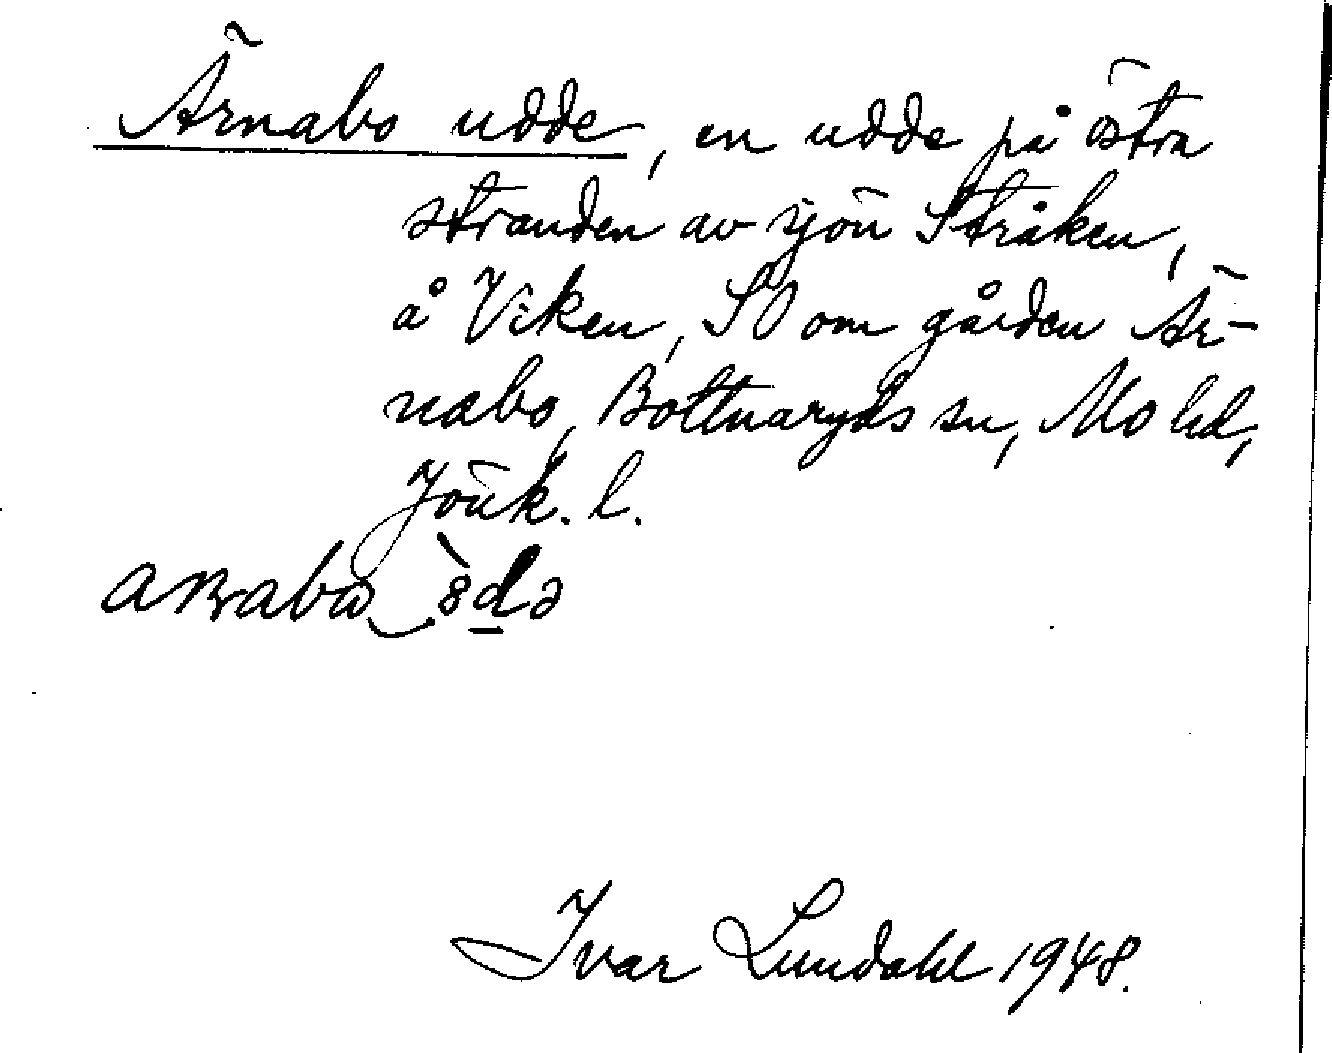 Ärnabo udde, en udde på östra
stranden av sjön Stråken,
å Viken, SO om gården Är-
nabo, Bottnaryds sn, Mo hd,
Jönk. l.
Ivar Lundahl 1948.